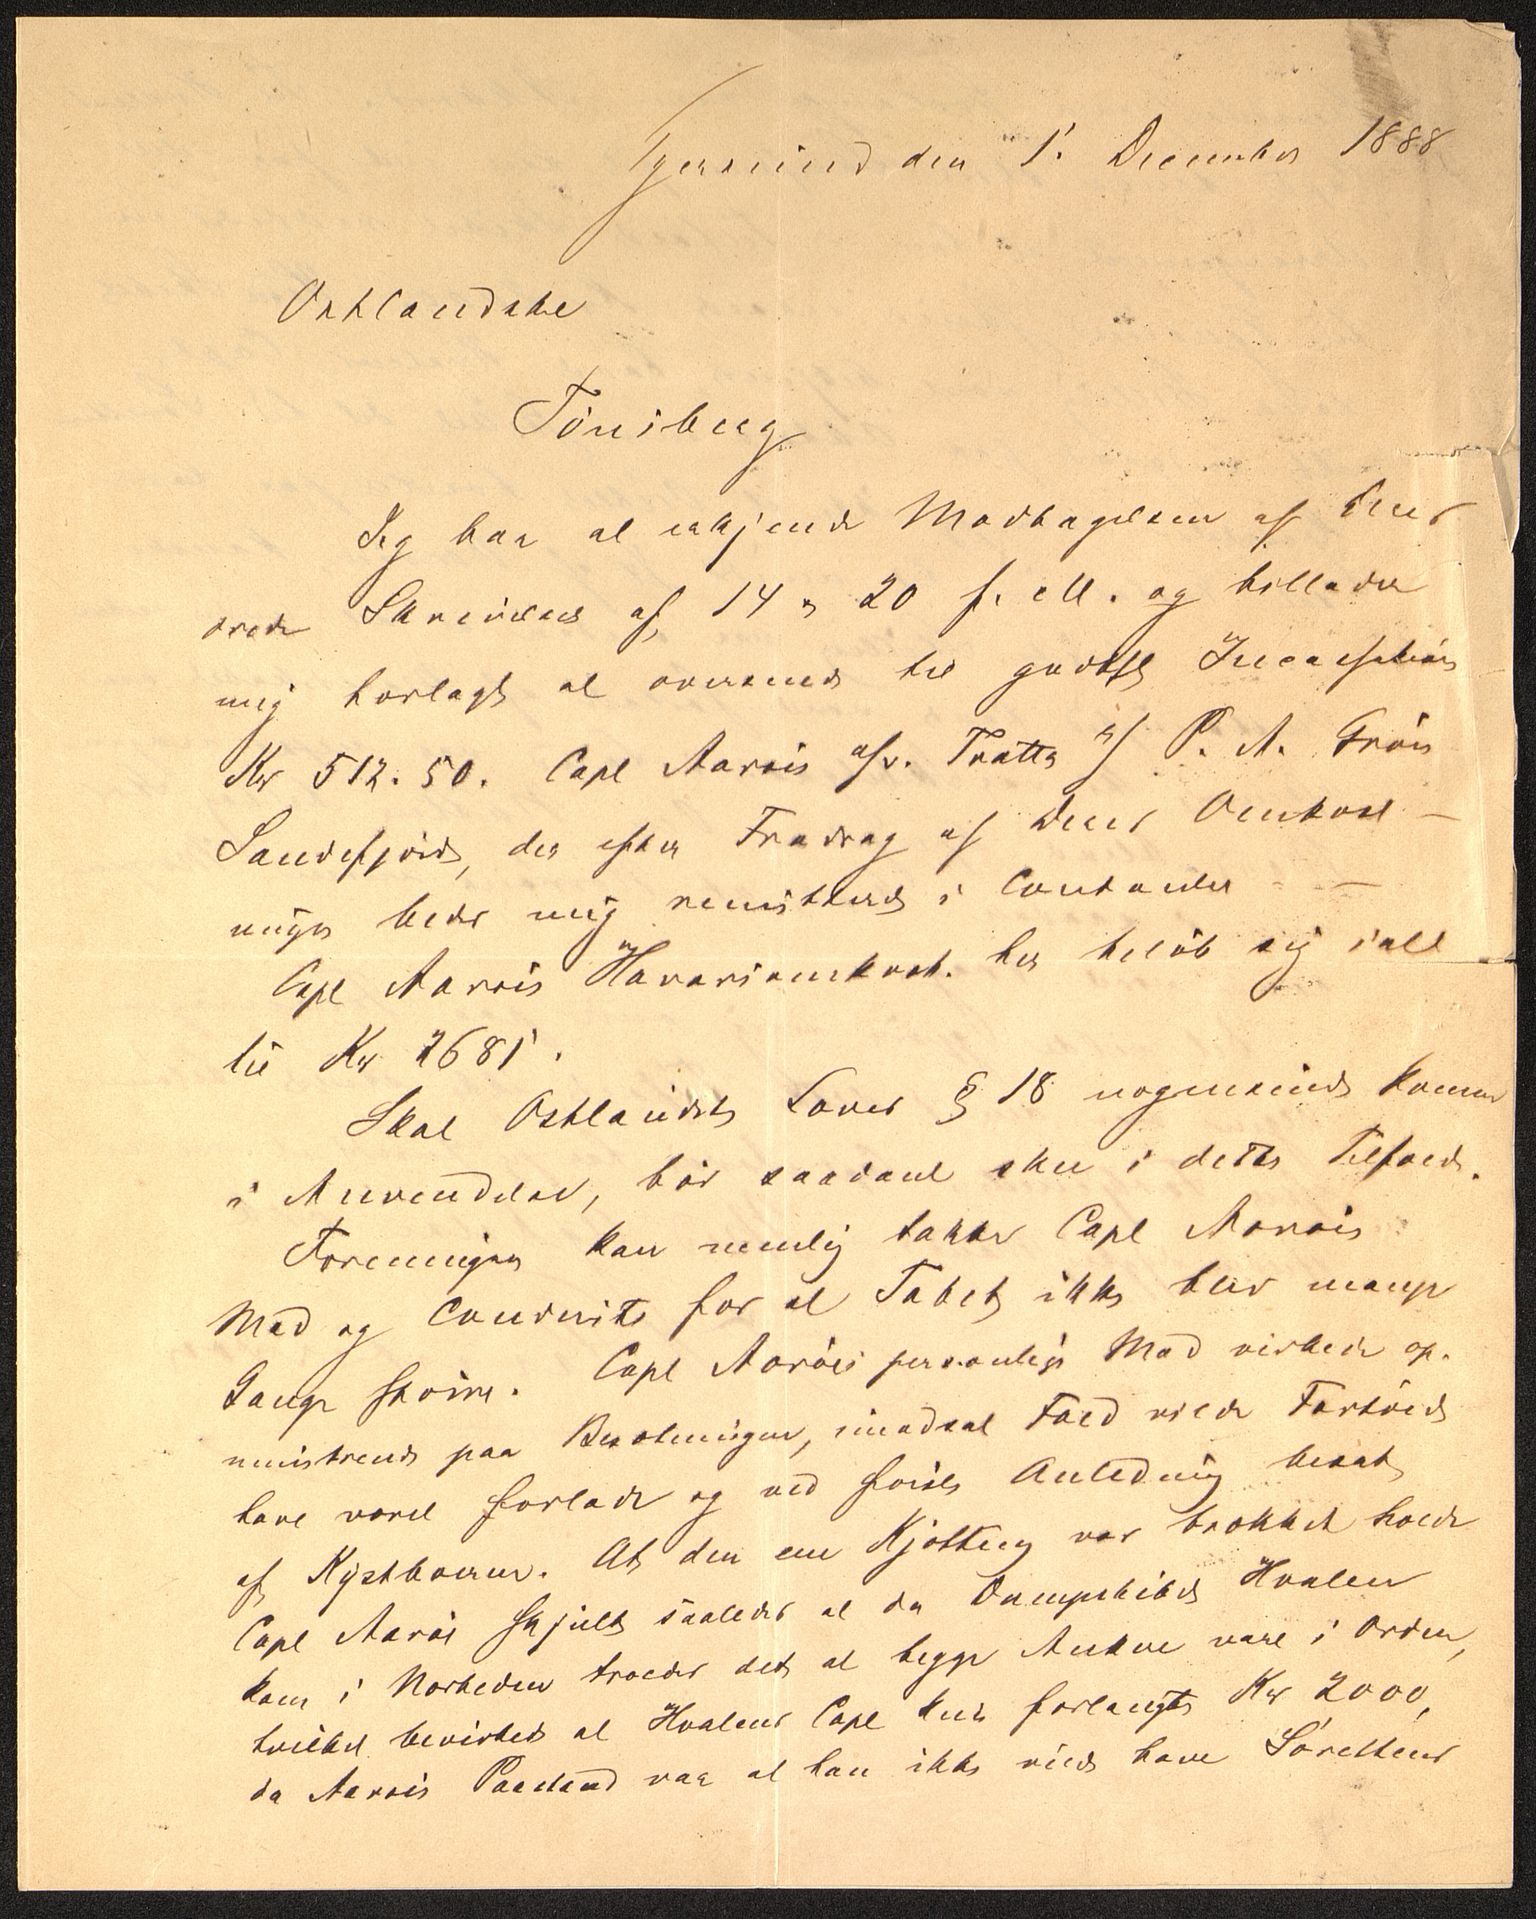 Egersund den 1. December 1888
Østlandske
Tönsberg
Jeg har at erkjende Modtagelsen af Deres
ærede Skrivelser af 14 & 20 f. M. og tillader
mig hoslagt at oversende til godhst Incassation
Kr 512.50. Capt Aarøis Tratta P. A. Grøn
Sandefjord, der efter Fradrag af Deres Omkost-
ninger bedes mig remitteret i Contanter -
Capt Aarøis Havariomkost. her beløb sig i alt
til Kr 2681.
Skal Østlandets Love § 18 nogensinde komme
i Anvendelse, bør saadant ske i dette Tilfælde.
Foreningen kan nemlig takke Capt Aarøis
Mod og Conduite for at Tabet ikke blev mange
Gange større. Capt Aarøes personlige Mod virkede op-
muntrende paa Besætningen, i modsat Fald vilde Fartøiet
have været forladt og ved første Anledning besat
af Kystboerne. At den ene Kjætting var brækket holdt
Capt Aarøe skjult saaledes at da Dampskibet Hvalen
kom i Nærheden troede det at begge Ankre vare i Orden,
hvilket bevirkede at Hvalens Capt kun forlangte Kr 2000,
da Aarøis Paastand var at han ikke vilde have Sørettens